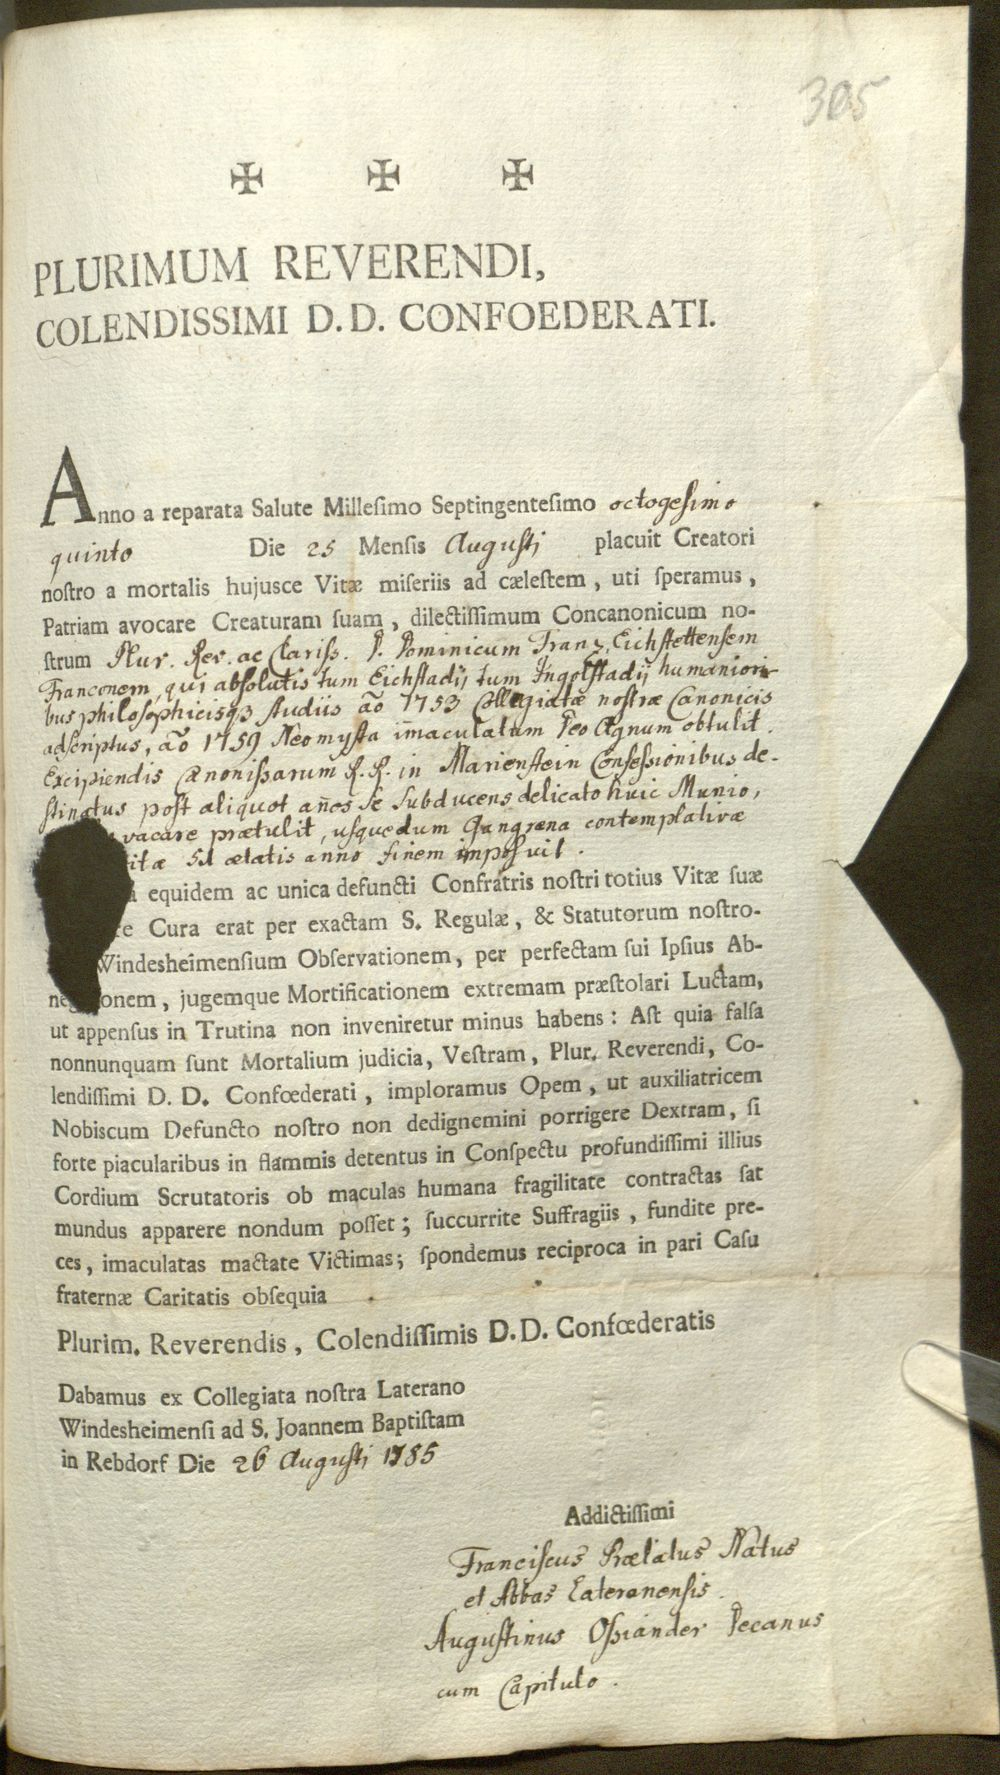 305
✠ ✠ ✠
PLURIMUM REVERENDI,
COLENDISSIMI D.D. CONFOEDERATI.
Anno a reparata Salute Millesimo Septingentesimo octogesimo
quinto Die 25 Mensis Augusti placuit Creatori
nostro a mortalis hujusce Vitæ miseriis ad cælestem, uti speramus,
Patriam avocare Creaturam suam, dilectissimum Concanonicum no-
strum Plur. Rev. ac Clariss. P. Dominicum Franz, Eichstettensem
Franconem, qui absolutis tum Eichstadij, tum Ingolstadij humaniori-
bus philosophicisq3 studiis aō 1753 Collegiatæ nostræ Canonicis
adscriptus, aō 1759 Neomysta im̄aculatum Deo Agnum obtulit.
Excipiendis Canonissarum R. R. in Marienstein Confessionibus de-
stinatus post aliquot an̄os se subducens delicato huic Munio,
vacare prætulit, usquedum Gangræna contemplativæ
itæ 51 ætatis anno finem imposuit.
equidem ac unica defuncti Confratris nostri totius Vitæ suæ
Cura erat per exactam S. Regulæ, & Statutorum nostro-
Windesheimensium Observationem, per perfectam sui Ipsius Ab-
neg onem, jugemque Mortificationem extremam præstolari Luctam,
ut appensus in Trutina non inveniretur minus habens: Ast quia falsa
nonnunquam sunt Mortalium judicia, Vestram, Plur. Reverendi, Co-
lendissimi D. D. Confœderati, imploramus Opem, ut auxiliatricem
Nobiscum Defuncto nostro non dedignemini porrigere Dextram, si
forte piacularibus in flammis detentus in Conspectu profundissimi illius
Cordium Scrutatoris ob maculas humana fragilitate contractas sat
mundus apparere nondum posset; succurrite Suffragiis, fundite pre-
ces, imaculatas mactate Victimas; spondemus reciproca in pari Casu
fraternæ Caritatis obsequia
Plurim. Reverendis, Colendissimis D.D. Confœderatis
Dabamus ex Collegiata nostra Laterano
Windesheimensi ad S. Joannem Baptistam
in Rebdorf Die 26 Augusti 1785
Addictissimi
Franciscus Prælatus Natus
et Abbas Lateranensis.
Augustinus Ossiander Decanus
cum Capitulo.